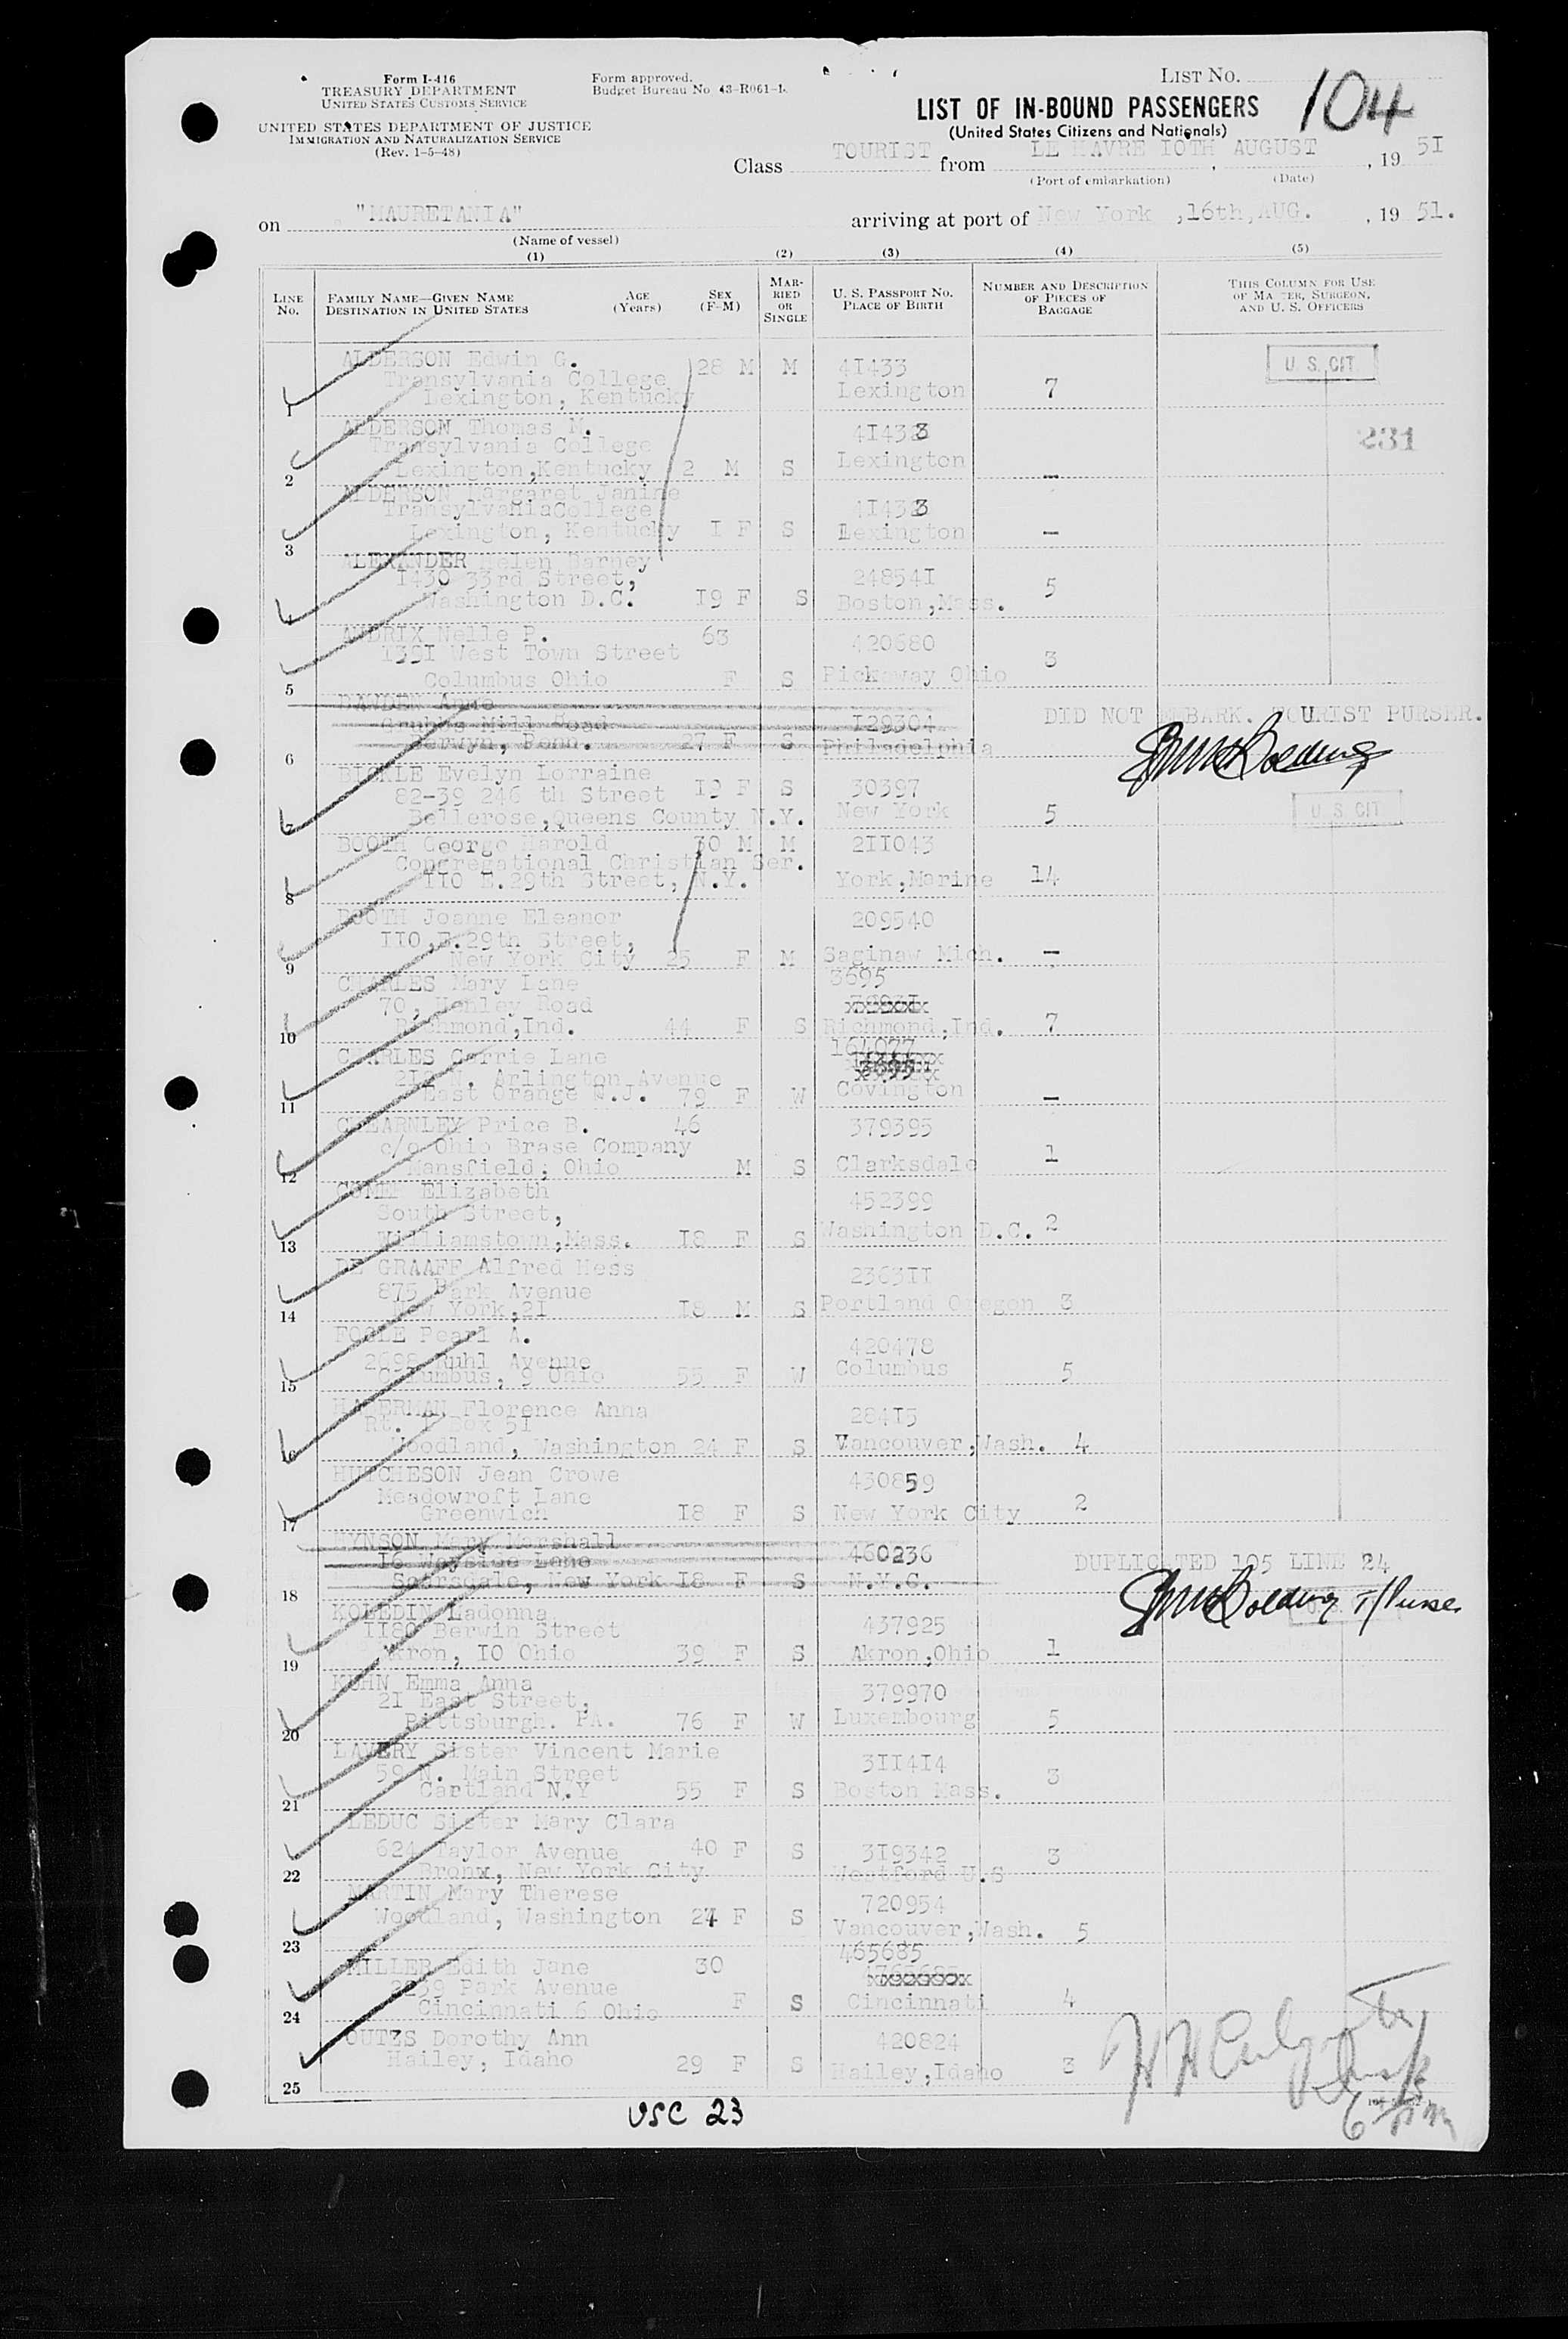 Form I-416
TREASURY DEPARTMENT
UNITED STATES CUSTOMS SERVICE
UNITED STATES DEPARTMENT OF JUSTICE
IMMIGRATION AND NATURALIZATION SERVICE
(Rev. 1-5-48)
Form approved.
Budget Bureau No 43-R061-1.
LIST NO. 104
LIST OF IN-BOUND PASSENGERS
(United States Citizens and Nationals)
Class TOURIST from LE HAVRE IOTH AUGUST, 19 5I
(Port of embarkation) (Date)
on "MAURETANIA" arriving at port of New York ,16th,AUG. , 19 51.
(Name of vessel)
(1) (2) (3) (4) (5)
LINE No.
FAMILY NAME—GIVEN NAME
DESTINATION IN UNITED STATES
AGE (Years)
SEX (F-M)
MARRIED OR SINGLE
U. S. PASSPORT NO.
PLACE OF BIRTH
NUMBER AND DESCRIPTION OF PIECES OF BAGGAGE
THIS COLUMN FOR USE OF MASTER, SURGEON, AND U. S. OFFICERS
ALDERSON Edwin G. 28 M M 4I433 U. S. CIT.
Transylvania College
1 Lexington, Kentucky Lexington 7
ALDERSON Thomas M. 4I433 231
Transylvania College
2 Lexington,Kentucky 2 M S Lexington —
ALDERSON Margaret Janine
TransylvaniaCollege 4I433
3 Lexington, Kentucky I F S Lexington —
ALEXANDER Helen Barney
I430 33rd Street, 24854I
4 Washington D.C. I9 F S Boston,Mass. 5
ANDRIX Nelle P. 63 420680
I39I West Town Street
5 Columbus Ohio F S Pickaway Ohio 3
Anne
Mill Road I29304 DID NOT EMBARK. TOURIST PURSER.
6 Berwyn, Penn. 27 F S Philadelphia
BICKLE Evelyn Lorraine
82-39 246 th Street I9 F S 30397
7 Bellerose,Queens County N.Y. New York 5 U. S. CIT.
BOOTH George Harold 30 M M 2II043
Congregational Christian Ser.
8 II0 E.29th Street, N.Y. York,Marine 14
BOOTH Joanne Eleanor 209540
II0,E.29th Street,
9 New York City 25 F M Saginaw Mich. —
CHARLES Mary Lane 3695
70, Henley Road
10 Richmond,Ind. 44 F S Richmond,Ind. 7
CHARLES Carrie Lane 164077
N. Arlington Avenue
11 East Orange N.J. 79 F W Covington —
CHEARNLEY Price B. 46 379395
c/o Ohio Brase Company
12 Mansfield, Ohio M S Clarksdale 1
COMER Elizabeth 452399
South Street,
13 Williamstown,Mass. I8 F S Washington D.C. 2
DE GRAAFF Alfred Hess 2363II
875 Park Avenue
14 New York,2I I8 M S Portland Oregon 3
FOGLE Pearl A. 420478
2698 Ruhl Avenue
15 Columbus, 9 Ohio 55 F W Columbus 5
HAGERMAN Florence Anna 284I5
Rt. I Box 5I
16 Woodland, Washington 24 F S Vancouver,Wash. 4
HUTCHESON Jean Crowe 430859
Meadowroft Lane
17 Greenwich I8 F S New York City 2
HYNSON Mary Marshall 460236 DUPLICATED 105 LINE 24
I6 Wayside Lane
18 Scarsdale, New York I8 F S N.Y.C.
T/Purser
KOLEDIN Ladonna
II80 Berwin Street 437925
19 Akron, IO Ohio 39 F S Akron,Ohio 1
KUHN Emma Anna 379970
2I East Street,
20 Pittsburgh. PA. 76 F W Luxembourg 5
LAVERY Sister Vincent Marie
59 N. Main Street 3II4I4
21 Cartland N.Y 55 F S Boston Mass. 3
LEDUC Sister Mary Clara
624 Taylor Avenue 40 F S 3I9342 3
22 Bronx, New York City Westford U.S
MARTIN Mary Therese 720954
Woodland, Washington 24 F S Vancouver,Wash. 5
23
MILLER Edith Jane 30 465685
3239 Park Avenue
24 Cincinnati 6 Ohio F S Cincinnati 4
OUTES Dorothy Ann 420824
Hailey, Idaho 29 F S Hailey,Idaho 3
25
USC 23